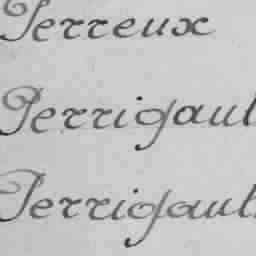 Perreux
Perrigault
Perrigault